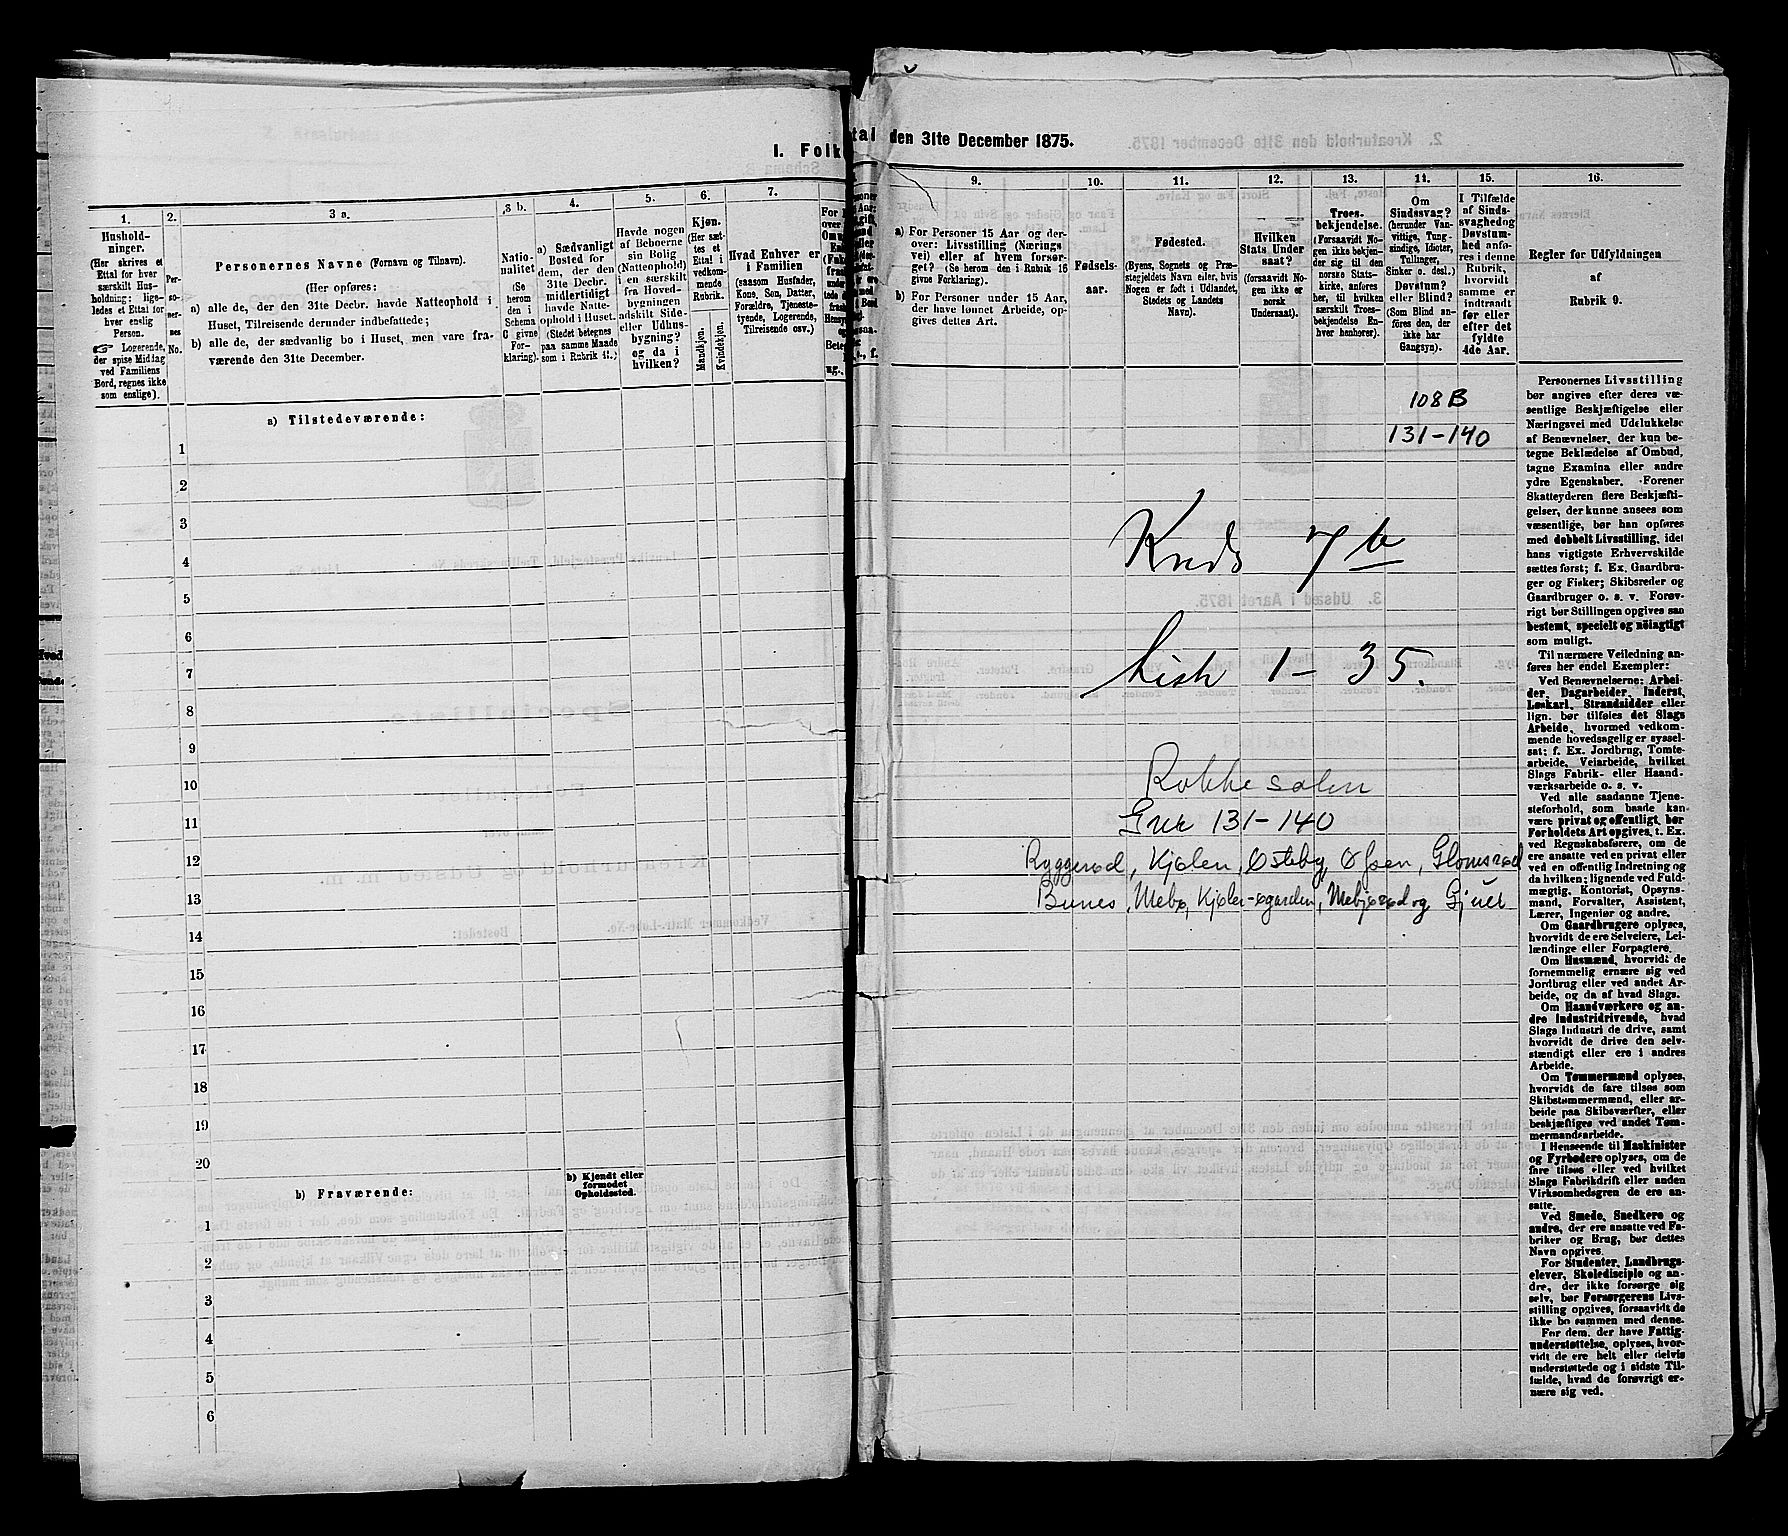 I. Folk
tal
den 31te December 1875.
1.
2.
3 a.
3 b.
4.
5.
6.
7.
Hushold-
ninger.
(Her skrives et
Ettal for hver
særskilt Hus-
holdning; lige-
ledes et Ettal for
hver enslig
Person.
☞ Logerende,
der spise Middag
ved Familiens
Bord, regnes ikke
som enslige).
Per-
so-
ner-
nes
No.
Personernes Navne (Fornavn og Tilnavn).
(Her opføres:
a) alle de, der den 31te Decbr. havde Natteophold i
Huset, Tilreisende derunder indbefattede;
b) alle de, der sædvanlig bo i Huset, men vare fra-
værende den 31te December.
Natio-
nalitet
(Se
herom
den i
Schema
C givne
For-
klaring).
a) Sædvanligt
Bosted for
dem, der den
31te Decbr.
midlertidigt
havde Natte-
ophold i Huset.
(Stedet betegnes
paa samme Maade
som i Rubrik 11.)
Havde nogen
af Beboerne
sin Bolig
(Natteophold)
i en særskilt
fra Hoved-
bygningen
adskilt Side-
eller Udhus-
bygning?
og da i
hvilken?
Kjøn.
(Her sæt-
tes et
Ettal i
vedkom-
mende
Rubrik.
Mandkjøn.
Kvindekjøn.
Hvad Enhver er
i Familien
(saasom Husfader,
Kone, Søn, Datter,
Forældre, Tjeneste-
tyende, Logerende,
Tilreisende osv.)
a) Tilstedeværende:
1
2
3
4
5
6
7
8
9
10
11
12
13
14
15
16
17
18
19
20
b) Fraværende:
b) Kjendt eller
formodet
Opholdssted.
1
2
3
4
5
6
9.
10.
11.
12.
13.
14.
15.
16.
a) For Personer 15 Aar og der-
over: Livsstilling (Nærings
vei) eller af hvem forsør-
get? (Se herom den i Rubrik 16
givne Forklaring).
b) For Personer under 15 Aar,
der have lønnet Arbeide, op-
gives dettes Art.
Fødsels-
aar.
Fødested.
(Byens, Sognets og Præ-
stegjeldets Navn eller, hvis
Nogen er født i Udlandet,
Stedets og Landets
Navn).
Hvilken
Stats Under
saat?
(forsaavidt No-
gen ikke er
norsk
Undersaat).
Troes-
bekjendelse.
(Forsaavidt No-
gen ikke bekjen-
der sig til den
norske Stats-
kirke, anføres
her, til hvilken
særskilt Troes-
bekjendelse En-
hver henhører).
Om
Sindssvag?
(herunder Van-
vittige, Tung-
sindige, Idioter,
Tullinger,
Sinker o. desl.)
Døvstum?
eller Blind?
(Som Blind an-
føres den, der
ikke har
Gangsyn).
I Tilfælde
af Sinds-
svaghed og
Døvstum-
hed anfø-
res i denne
Rubrik,
hvorvidt
samme er
indtraadt
før eller
efter det
fyldte
4de Aar.
Regler for Udfyldningen
af
Rubrik 9.
108 B
131-140
Kreds 7 b
Liste 1 - 35.
Rokke solen
Gner 131-140
Ryggerød, Kjølen, Østeby, Øfsen, Glomsrød
Bunes, Mebø, Kjølen-øgarden, Mebjørød og Gjuel
Personernes Livsstilling
bør angives efter deres væ-
sentlige Beskjæftigelse eller
Næringsvei med Udelukkelse
af Benævnelser, der kun be-
tegne Beklædelse af Ombud,
tagne Examina eller andre
ydre Egenskaber. Forener
Skatteyderen flere Beskjæfti-
gelser, der kunne ansees som
væsentlige, bør han opføres
med dobbelt Livsstilling, idet
hans vigtigste Erhvervskilde
sættes først; f. Ex. Gaardbru-
ger og Fisker; Skibsreder og
Gaardbruger o. s. v. Forøv-
rigt bør Stillingen opgives saa
bestemt, specielt og nöiagtigt
som muligt.
Til nærmere Veiledning an-
føres her endel Exempler:
Ved Benævnelserne: Arbei-
der, Dagarbeider, Inderst,
Løskarl, Strandsidder eller
lign. bør tilføies det Slags
Arbeide, hvormed vedkom-
mende hovedsagelig er syssel-
sat; f. Ex. Jordbrug, Tomte-
arbeide, Veiarbeide, hvilket
Slags Fabrik- eller Haand-
værksarbeide o. s. v.
Ved alle saadanne Tjene-
steforhold, som baade kan
være privat og offentligt, bør
Forholdets Art opgives, t. Ex.
ved Regnskabsførere, om de
ere ansatte ved en privat eller
ved en offentlig Indretning og
da hvilken; lignende ved Fuld-
mægtig, Kontorist, Opsyns-
mand, Forvalter, Assistent,
Lærer, Ingeniør og andre.
Om Gaardbrugere oplyses,
hvorvidt de ere Selveiere, Lei-
lændinge eller Forpagtere.
Om Husmænd, hvorvidt de
fornemmelig ernære sig ved
Jordbrug eller ved andet Ar-
beide, og da af hvad Slags.
Om Haandværkere og an-
dre Industridrivende, hvad
Slags Industri de drive, samt
hvorvidt de drive den selv-
stændigt eller ere i andres
Arbeide.
Om Tømmermænd oplyses,
hvorvidt de fare tilsøs som
Skibstømmermænd, eller ar-
beide paa Skibsværfter, eller
beskjæftiges ved andet Tøm-
mermandsarbeide.
I Henseende til Maskinister
og Fyrbødere oplyses, om de
fare tilsøs eller ved hvilket
Slags Fabrikdrift eller anden
Virksomhedsgren de ere an-
satte.
Ved Smede, Snedkere og
andre, der ere ansatte ved Fa-
briker og Brug, bør dettes
Navn opgives.
For Studenter, Landbrugs-
elever, Skoledisciple og an-
dre, der ikke forsørge sig
selv, bør Forsørgerens Livs-
stilling opgives, forsaavidt de
ikke bo sammen med denne.
For dem, der have Fattig-
understøttelse, oplyses, hvor-
vidt de ere helt eller delvis
understøttede og i sidste Til-
fælde, hvad de forøvrigt er-
nære sig ved.